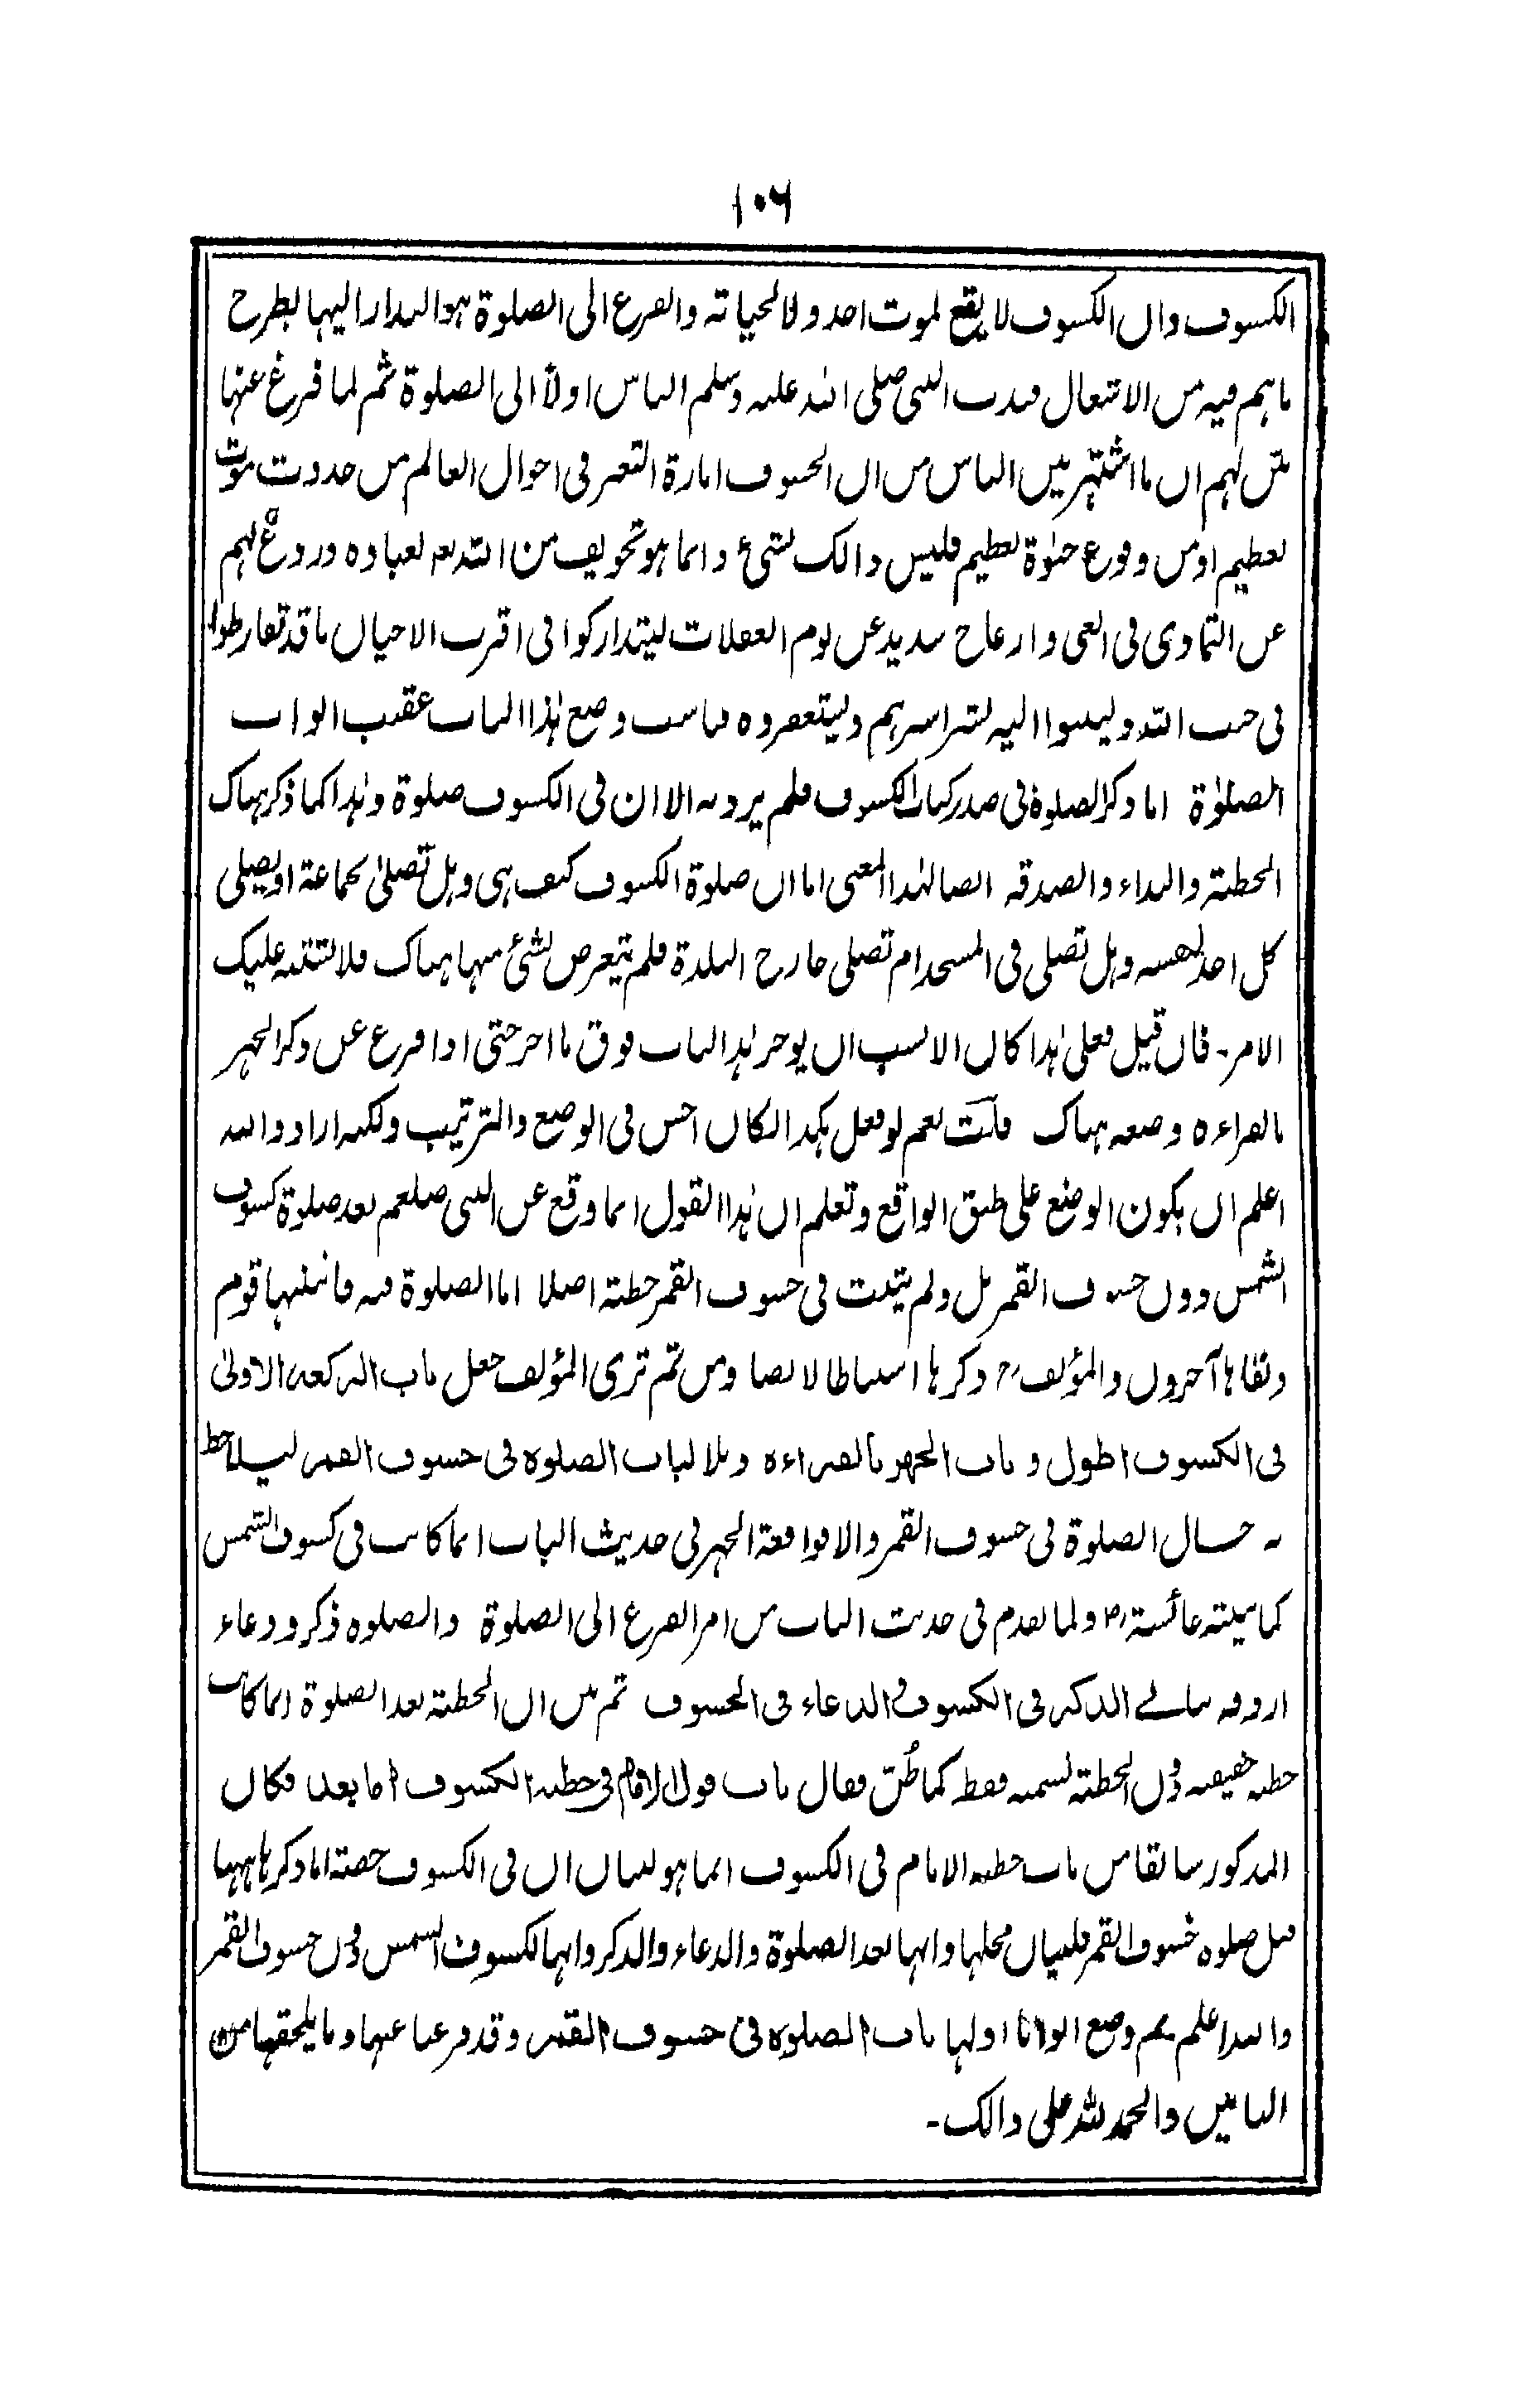 ١٠٦
الكسوف وان الكسوف لا يقع لموت احد ولا لحياته والفزع الى الصلوة هو البدار اليها بطرح
ما هم فيه من الاشتغال فندب النبى صلى الله عليه وسلم الناس اولاً الى الصلوة ثم لما فرغ عنها
بيّن لهم ان ما اشتهر بين الناس من ان الخسوف امارة التغير فى احوال العالم من حدوث موت
لعظيم او من وقوع حيٰوة لعظيم فليس ذالك بشئ وانما هو تخويف من الله تعه لعباده وردعٌ لهم
عن التمادى فى الغى وازعاج شديد عن نوم الغفلات ليتداركوا فى اقرب الاحيان ما قد تفارطوا
فى جنب الله ولينيبوا اليه بشراشرهم وليستغفروه فناسب وضع هٰذا الباب عقيب ابواب
الصلوٰة اما ذكر الصلوة فى صدر كتاب الكسوف فلم يرد به الا ان فى الكسوف صلوة وهٰذا كما ذكر هناك
الخطبة والنداء والصدقه ايضا لهٰذا المعنى اما ان صلوة الكسوف كيف هى وهل تصلىٰ بجماعة او يصلى
كل احد لنفسه وهل تصلى فى المسجد ام تصلى خارج البلدة فلم يتعرض لشئ منها هناك فلا يشتبه عليك
الامر۔ فان قيل فعلى هٰذا كان الانسب ان يوخر هٰذا الباب فوق ما اخر حتى اذا فرغ عن ذكر الجهر
بالقراءه وضعه هناك قلت نعم لو فعل هكذا لكان احسن فى الوضع والترتيب ولكنه اراد والله
اعلم ان يكون الوضع على طبق الواقع وتعلم ان هٰذا القول انما وقع عن النبى صلعم بعد صلوة كسوف
الشمس دون خسوف القمر بل ولم يثبت فى خسوف القمر خطبة اصلا اما الصلوة فيه فاثبتها قوم
ونفاها آخرون والمؤلف رح ذكرها استنباطا لا نصا ومن ثم ترى المؤلف جعل باب الركعه الاولىٰ
فى الكسوف اطول وباب الجهر بالقراءه وتلا لباب الصلوه فى خسوف القمر ليلاحظ
به حال الصلوة فى خسوف القمر والا فواقعة الجهر فى حديث الباب انما كانت فى كسوف الشمس
كما بينته عائشة رض ولما تقدم فى حديث الباب من امر الفزع الى الصلوة والصلوه ذكر ودعاء
اردفه ببابے الذكر فى الكسوف والدعاء فى الخسوف ثم بين ان الخطبة بعد الصلوة انما كانت
خطبه حقيقه دون الخطبة لتسميه فقط كما ظُنّ فقال باب قول الامام فى خطبة الكسوف اما بعد فكان
المذكور سابقا من باب خطبه الامام فى الكسوف انما هو لبيان ان فى الكسوف خطبة اما ذكرها ههنا
قبل صلوه خسوف القمر فلبيان محلها وانها بعد الصلوة والدعاء والذكر وانها لكسوف الشمس دون خسوف القمر
والله اعلم ثم وضع ابوابا اولها باب الصلوه فى خسوف القمر وقد فرغنا عنها وما يلحقها من
البابين والحمد لله على ذالك۔